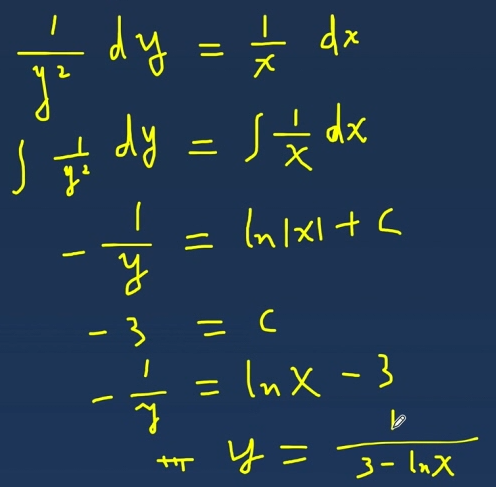 1/y² dy = 1/x dx
∫ 1/y² dy = ∫ 1/x dx
- 1/y = ln|x| + C
- 3 = C
- 1/y = ln x - 3
y = 1/(3 - ln x)